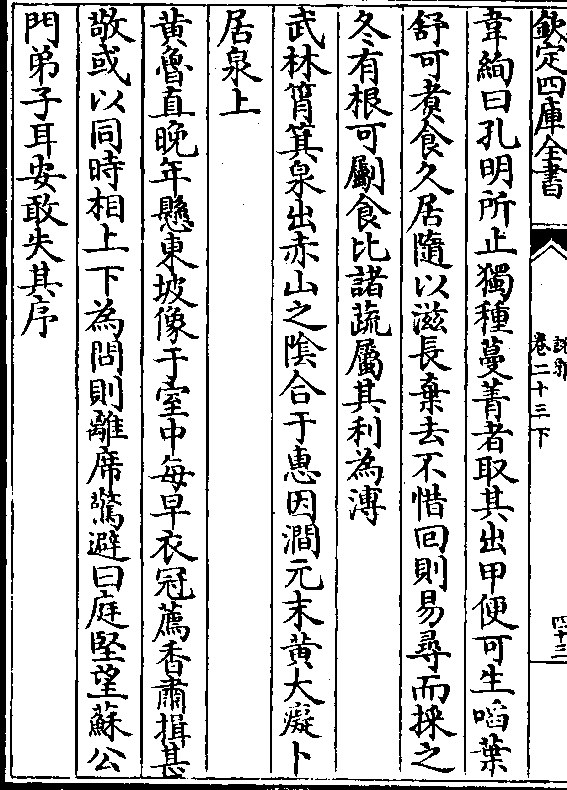 欽定四庫全書
說郛
卷二十三下
四十三
韋絢曰孔明所止獨種蔓菁者取其出甲便可生㗖葉
舒可煑食久居隨以滋長棄去不惜回則易尋而採之
冬有根可劚食比諸蔬屬其利為溥
武林筲箕泉出赤山之隂合于惠因澗元末黄大癡卜
居泉上
黄魯直晚年懸東坡像于室中每早衣冠薦香肅揖甚
敬或以同時相上下為問則離席驚避曰庭堅望蘇公
門弟子耳安敢失其序